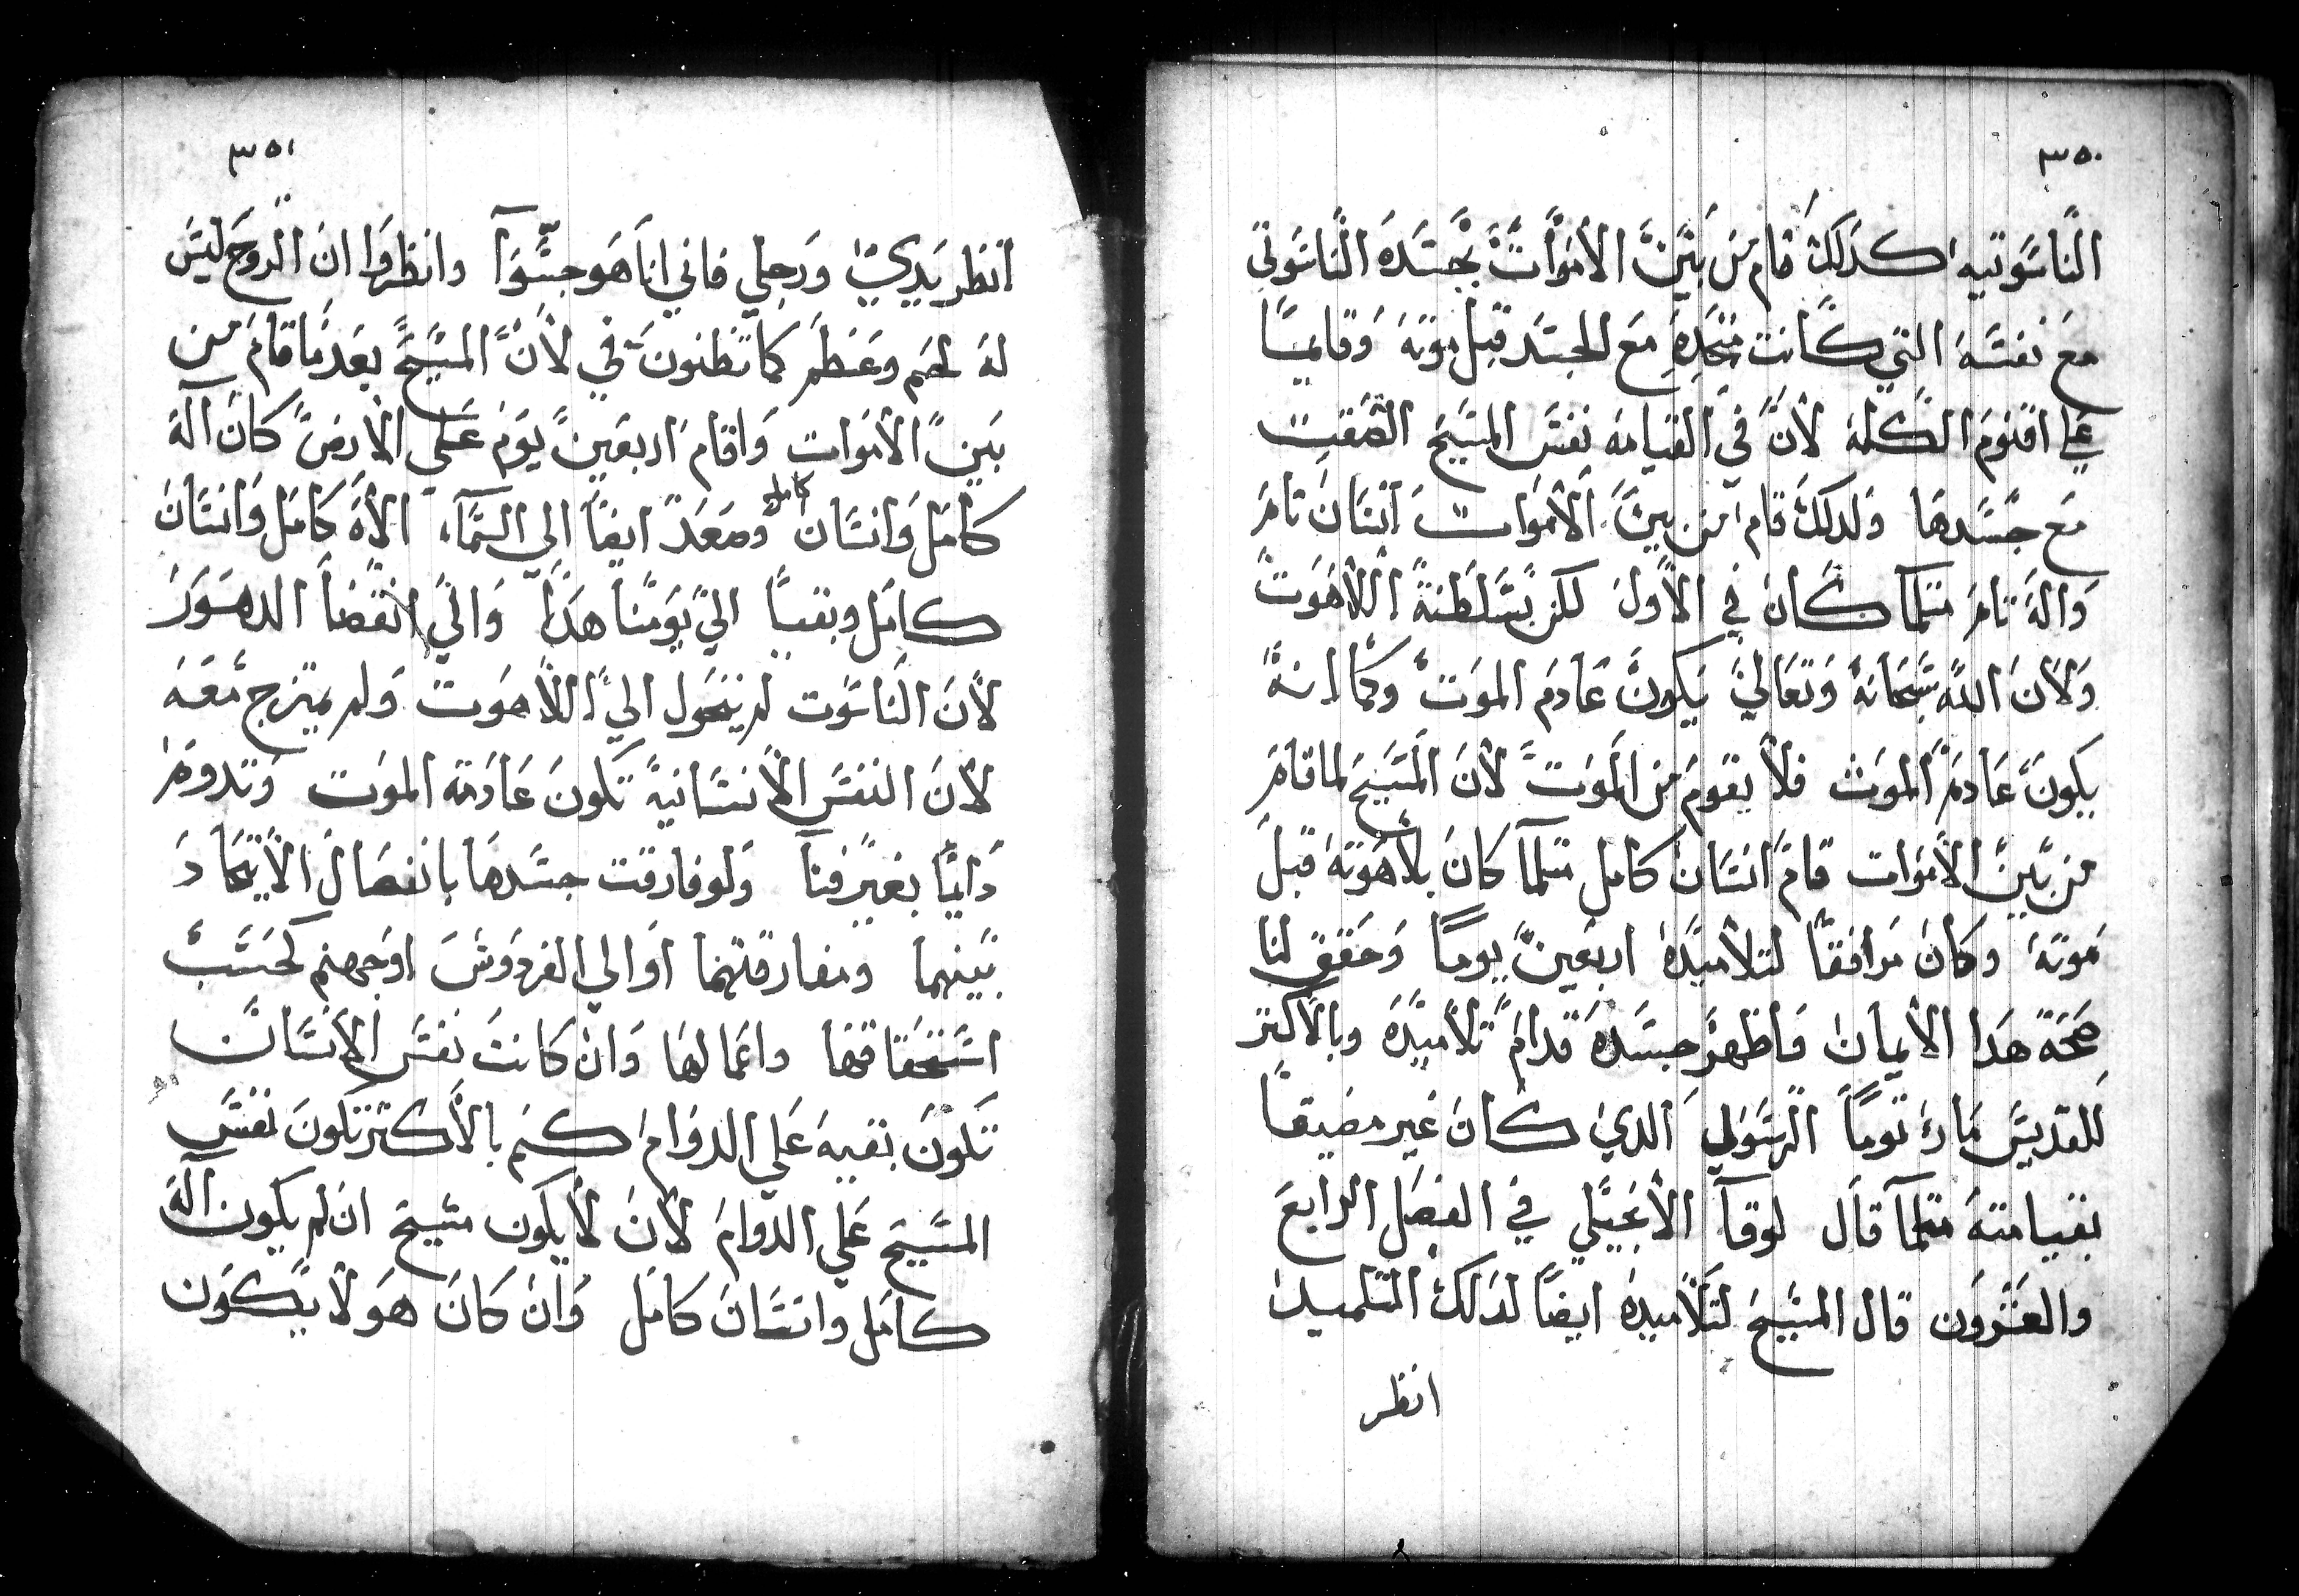 ٣٥٠
الناسوتيه كدلك قام من بين الاموات بجسده الناسوتي
مع نفسه التي كانت متحده مع الجسد قبل موته وقايما
علي اقنوم الكلمه لان في القيامه نفس المسيح التصقت
مع جسدها ولدلك قام من بين الاموات انسان تام
واله تام متلما كان في الاول لكن بسلطنة اللاهوت
ولان الله سبحانه وتعالي يكون عادم الموت وكما انه
يكون عادم الموت فلا يقوم من الموت لان المسيح لما قام
من بين الاموات قام انسان كامل متلما كان بلاهوته قبل
موته وكان مرافقا لتلاميده اربعين يوما وحقق لنا
صحة هدا الايمان فاظهر جسده قدام تلاميده وبالاكتر
للقديس مارى توما الرسولي الدي كان غير مصدقا
بقيامته متلما قال لوقا الانجيلي في الفصل الرابع
والعشرون قال المسيح لتلاميده ايضا لدلك التلميد
انظر
٣٥١
انظر يدي ورجلي فاني انا هو جسوا وانظروا ان الروح ليس
له لحم وعظم كما تظنون في لان المسيح بعد ما قام من
بين الاموات واقام اربعين يوم علي الارض كان آله
كامل وانسان كامل وصعد ايضا الي السماء الاه كامل وانسان
كامل وبقيا الي يومنا هدا والي انقضا الدهور
لان الناسوت لم يتحول الي اللاهوت ولم يمتزج معه
لان النفس الانسانية تكون عادمة الموت وتدوم
دايما بغير فنا ولو فارقت جسدها بانفصال الاتحاد
بينهما ومفارقتهما اوالي الفردوس اوجهنم كحسب
استحقاقها واعمالها وان كانت نفس الانسان
تكون بقيه علي الدوام كم بالاكتر تكون نفس
المسيح علي الدوام لان لا يكون مسيح ان لم يكون آله
كامل وانسان كامل وان كان هو لا يكون